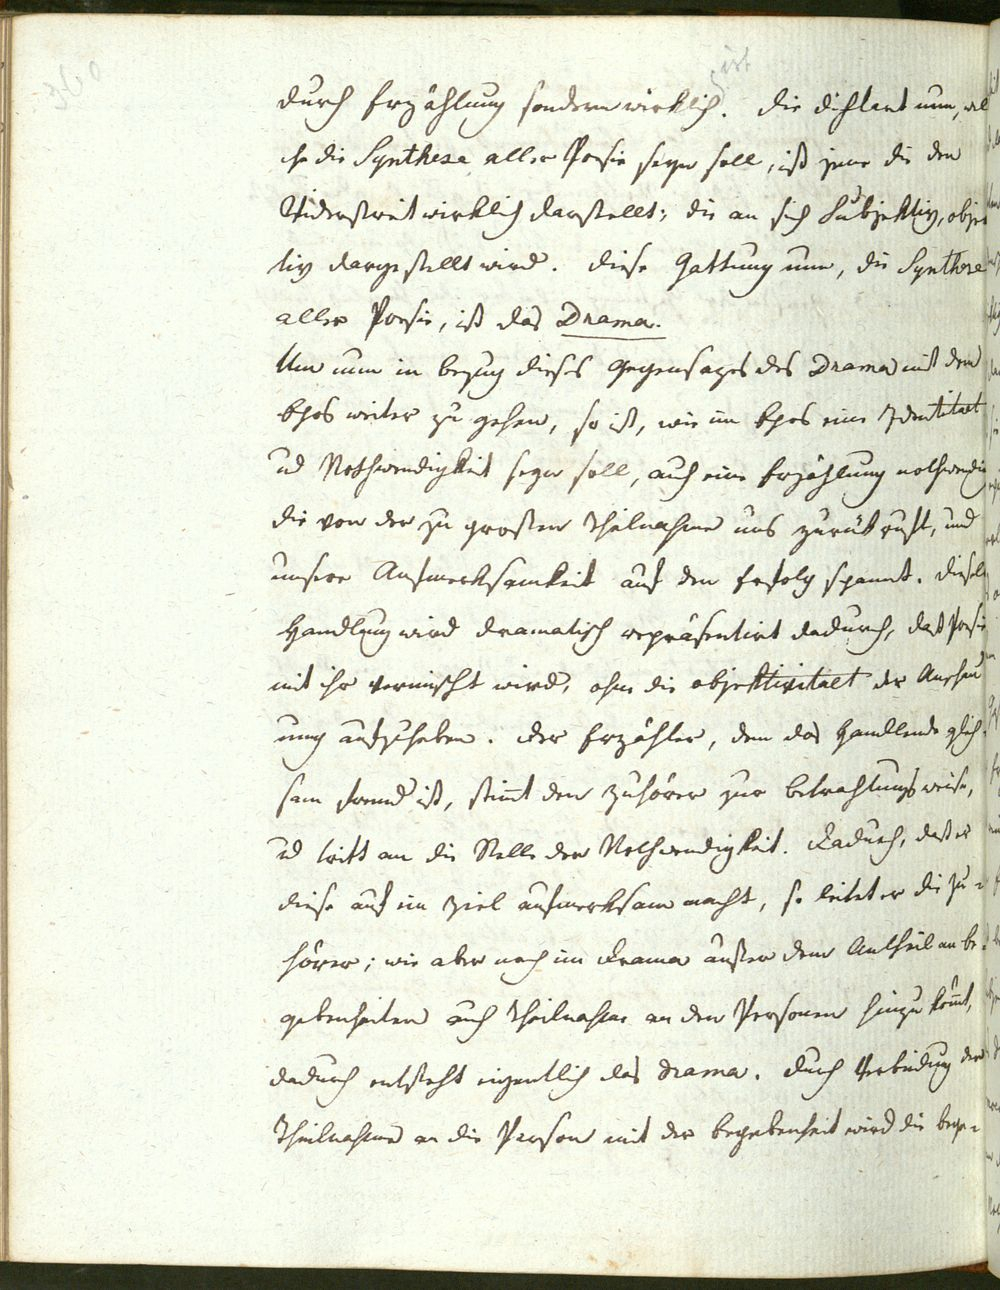 360
ist
durch Erzählung sondern wirklich. Die Dichtart nun, wel
che die Synthese aller Poesie seyn soll, ist jene die den
Widerstreit wirklich darstellt; die an sich Subjektiv, objec
tiv dargestellt wird. Diese Gattung nun, die Synthese
aller Poesie, ist das Drama.
Um nun in bezug dieses Gegensazes des Drama mit dem
Epos weiter zu gehen, so ist, wie im Epos eine Identitaet
ud Nothwendigkeit seyn soll, auch eine Erzählung nothwendig
die von der zu großen Theilnahme uns zurükruft, und
unsere Aufmerksamkeit auf den Erfolg spannt. Dieselbe
Handlung wird dramatisch repräsentirt dadurch, daß Poesie
mit ihr vermischt wird, ohne die objektivitaet der Anschau
ung aufzuheben. Der Erzähler, dem das Handlende gleich
sam fremd ist, stimt den Zuhörer zur betrachtungsweise,
ud tritt an die Stelle der Nothwendigkeit. Dadurch, daß er
diese auf im Ziel aufmerksam macht, so leitet er die Zu-
hörer; wie aber noch im Drama außer dem Antheil an be-
gebenheiten auch Theilnahme an den Personen hinzu kömt,
dadurch entsteht eigentlich das Drama. Durch Verbindung der
Theilnahme an die Person mit der begebenheit wird die bege-